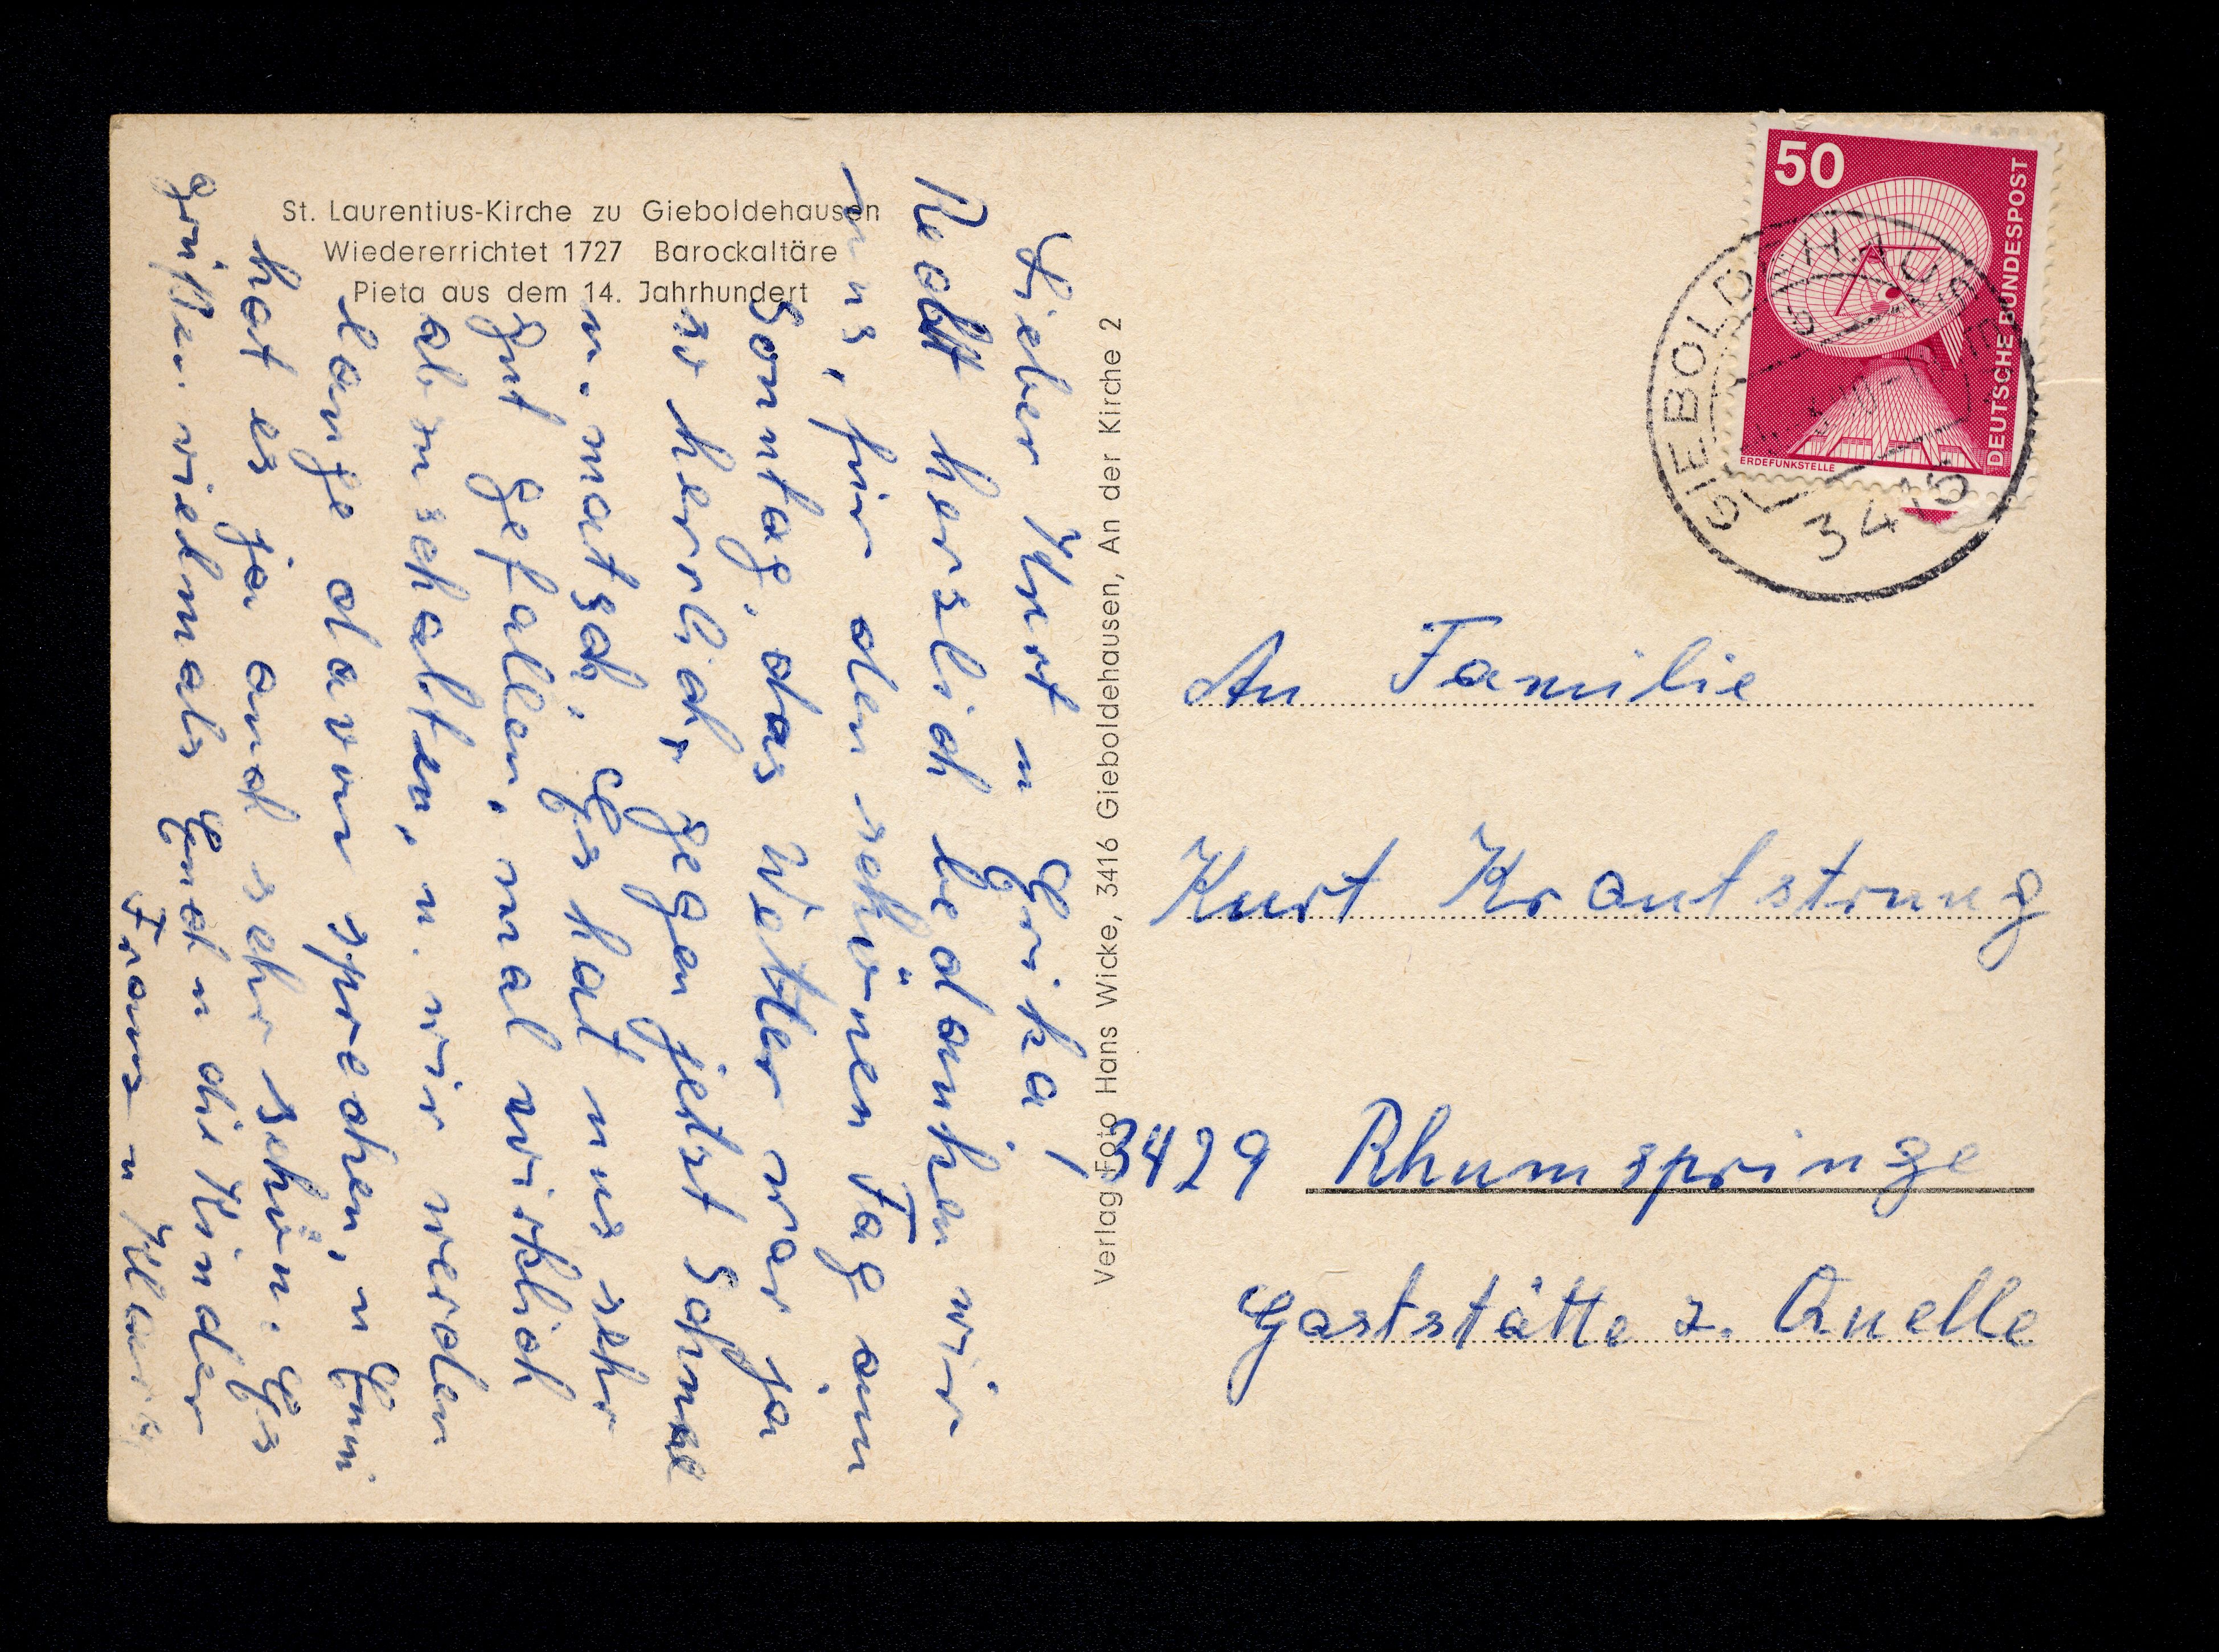 St. Laurentius-Kirche zu Gieboldehausen
Wiedererrichtet 1727 Barockaltäre
Pieta aus dem 14. Jahrhundert
Lieber Kurt u Erika,
Recht herzlich bedanken wir
uns, für den schönen Tag am
Sonntag, das Wetter war ja
so herrlich, gegen jetzt Schnee
u. matsch, Es hat uns sehr
gut gefallen, mal wirklich
abzuschalten, u. wir werden
lange davon sprechen, u Emmi
hat es ja auch sehr schön. Es
grüßen vielmals Euch u die Kinder
Franz u
Verlag Foto Hans Wicke, 3416 Gieboldehausen, An der Kirche 2
50
DEUTSCHE BUNDESPOST
ERDEFUNKSTELLE
GIEBOLD
3416
An Familie
Kurt Krautstrung
3429 Rhumspringe
Gaststätte z. Quelle